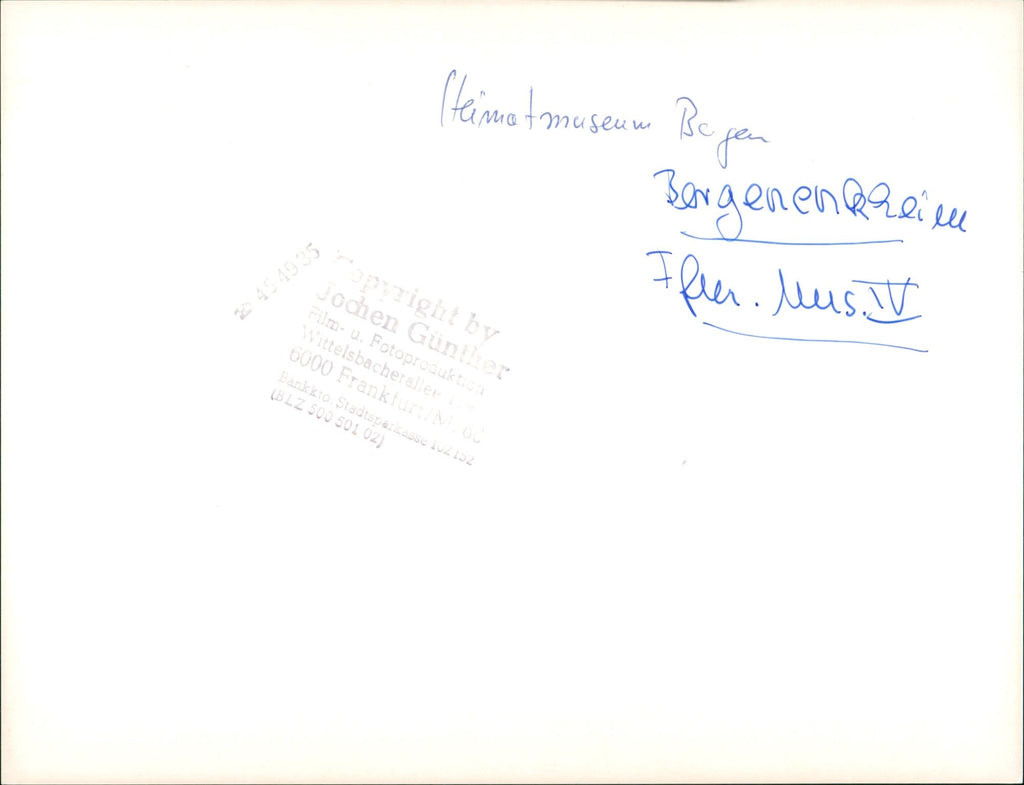 Heimatmuseum Bergen
Bergenenkheim
Ffm. Mus. IV
☎ 45 49 35
Copyright by
Jochen Günther
Film- u. Fotoproduktion
Wittelsbacherallee
6000 Frankfurt/M. 60
Bankkto. Stadtsparkasse 102152
(BLZ 500 501 02)